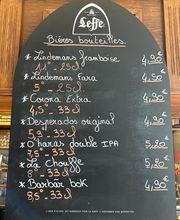 Leffe
Bières bouteilles.
* Lindemans framboise 4,90€
11° - 25cl
* Lindemans Faro 4,50€
5° - 25cl
* Corona Extra 4,50€
4,5° - 33cl
* Desperados original 4,90€
5,9° - 33cl
* O'haras double IPA 5,20€
7,5° - 33cl
* La Chouffe 5,20€
8° - 33cl
* Barbar bok 4,90€
8,5° - 33cl